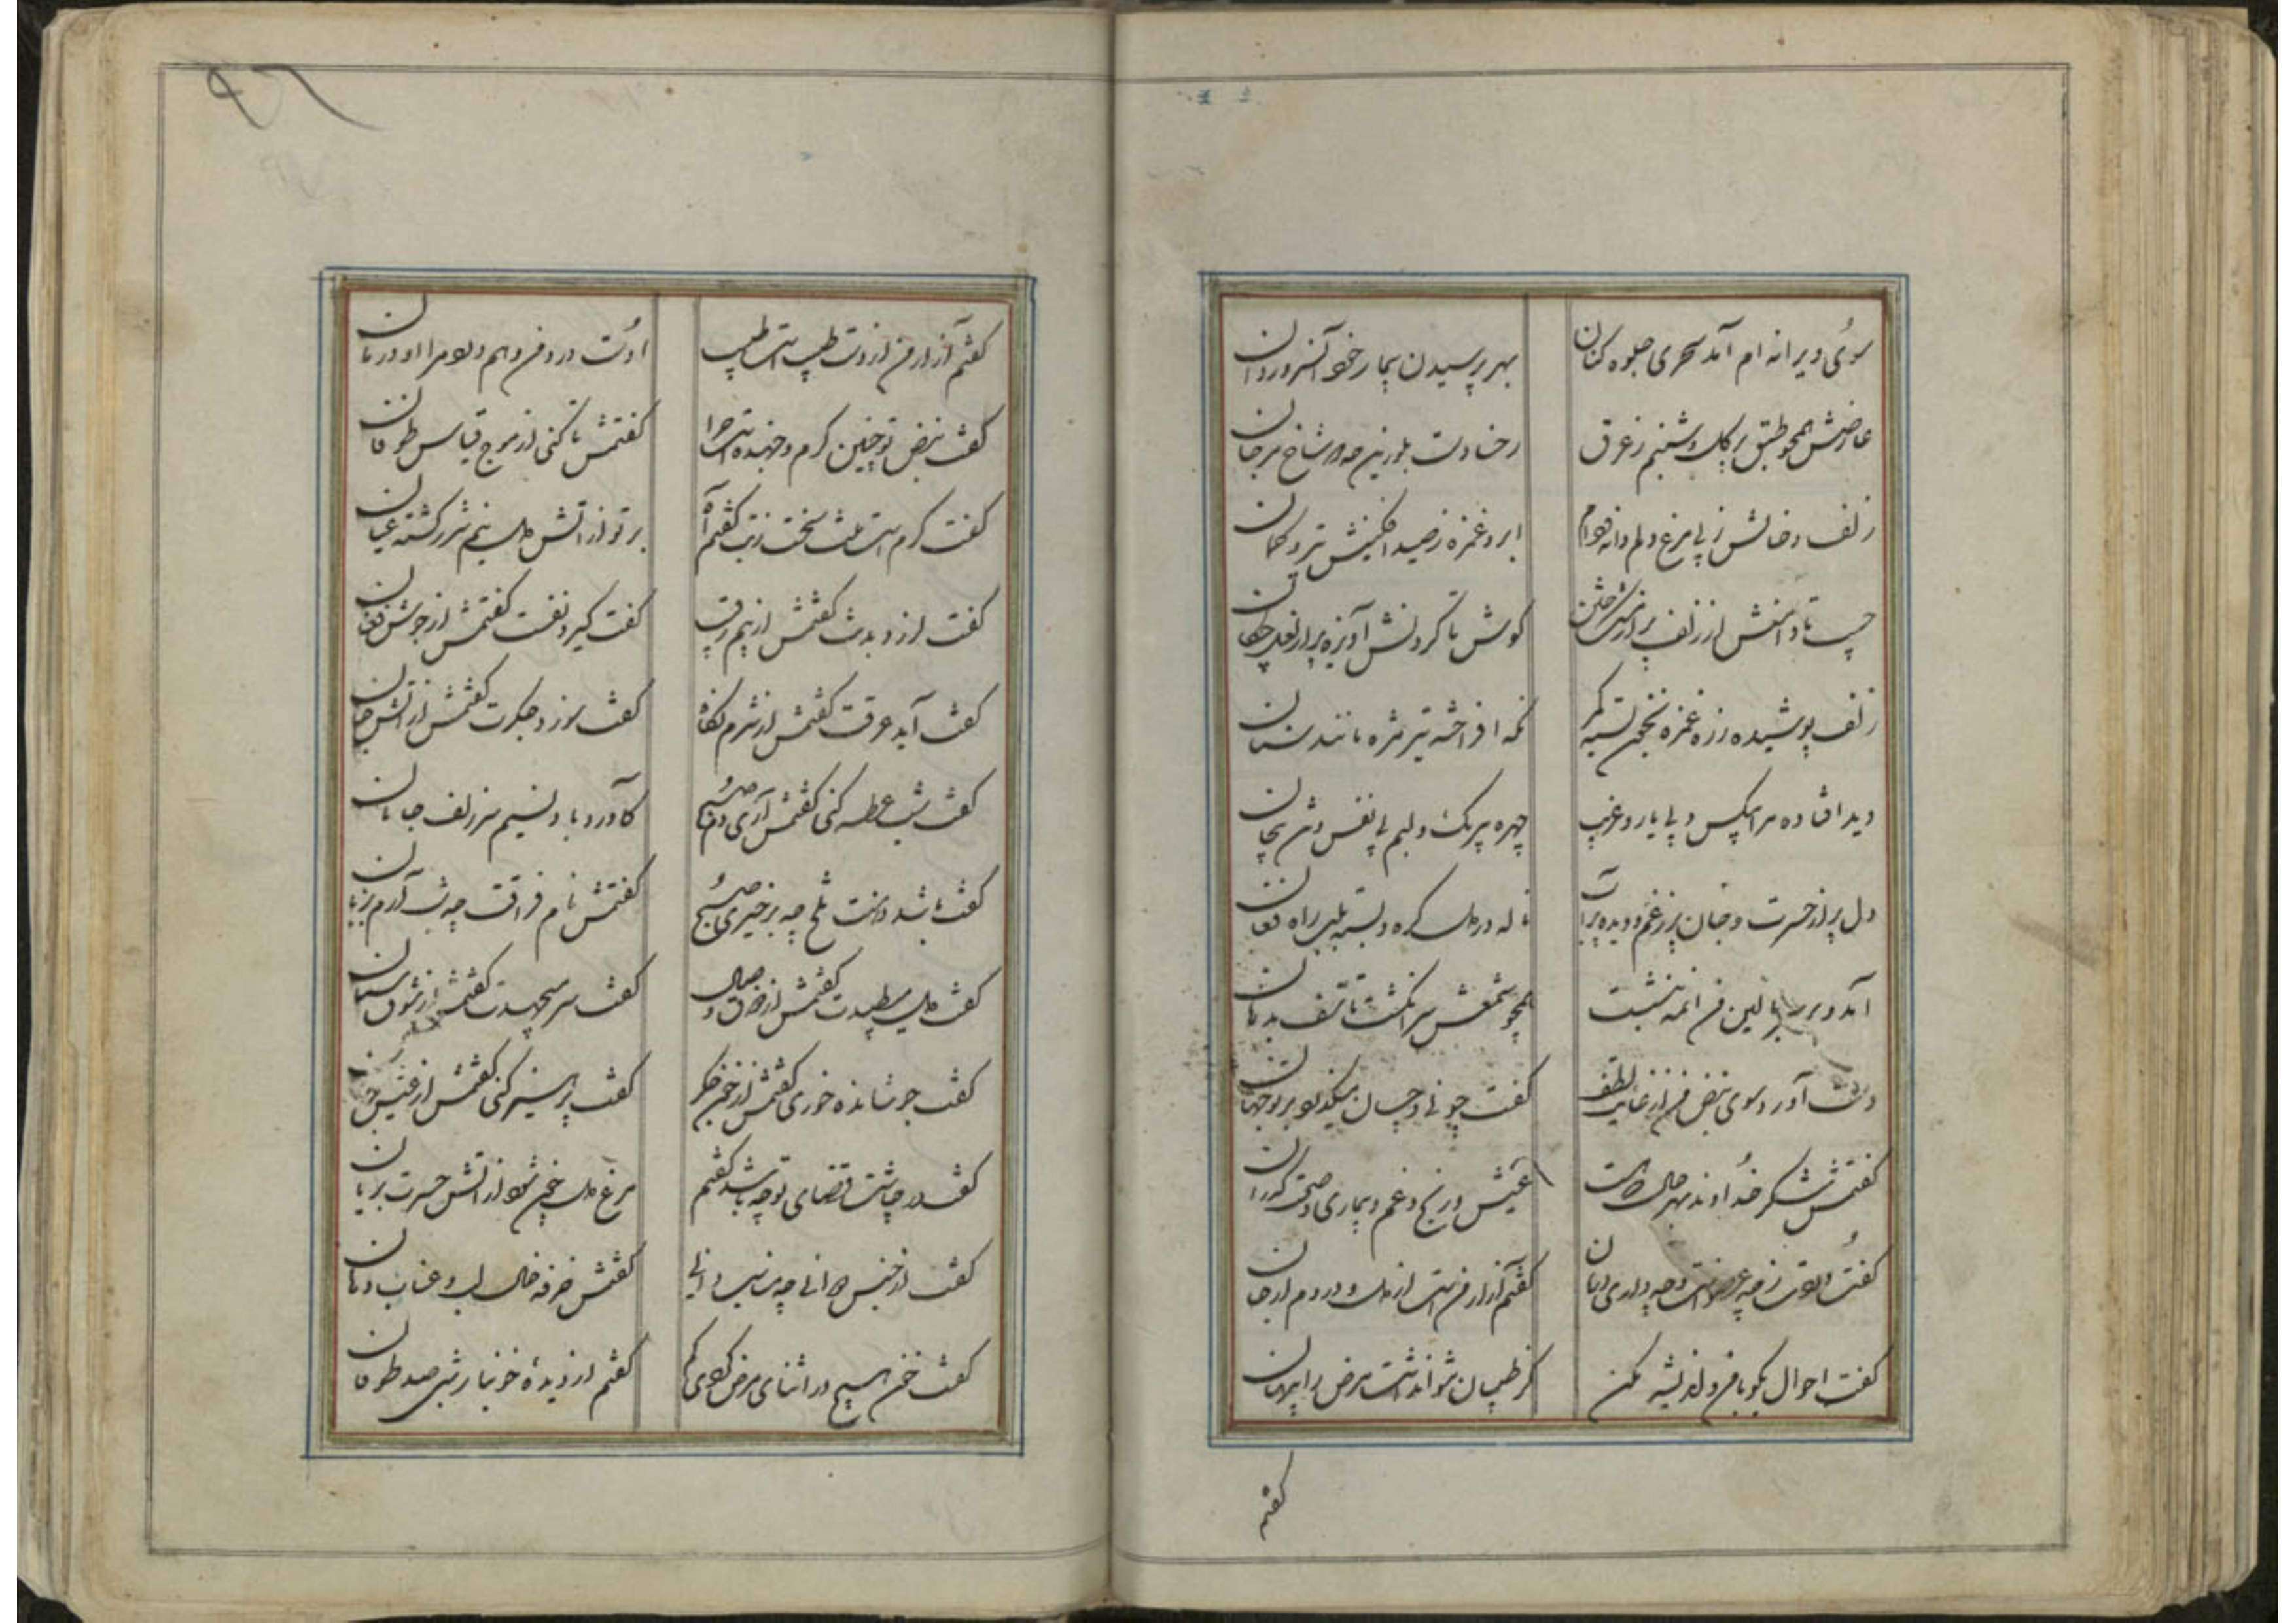 سوی ویرانه ام آمد سحری جلوه کنان بهر پرسیدن بیمار خود آنسرو روان
عارضش همچو طبق برگل و شبنم ز عرق رخ و دست بلورین چو شاخ مرجان
زلف و خالش ز پی مرغ دلم دانه و دام ابرو و غمزه ز صید افکنیش تیر و کمان
تا دامنش از زلف پر از مشک ختن گوش تا گردنش آویزه پر از
زلف پوشیده زره غمزه بخنجر بسته کمر نگه افراخته تیر مژه مانند سنان
دید افتاده مرا بیکس و بی یار و غریب چهره بیرنگ و لبم بی نفس و تن بیجان
دل پر از حسرت و جان پر ز غم و دیده پر آب ناله در دل گره و بسته بلب راه فغان
آمد و بر سر بالین من آنمه بنشست همچو شمعش سر انگشت تاسف بدهان
دست آورد سوی نبض من از غایت لطف گفت چونی و چسان میگذرد بر تو جهان
گفتمش شکر خداوند بهر حال که هست عیش و رنج و غم و بیماری و صحت گذران
گفت دردت ز چه عضو است و چه داری درمان گفتم آزار من است از دل و دردم از جان
گفت احوال بگو با من و اندیشه مکن کز طبیبان نتوان داشت مرض را پنهان
گفتم
گفتم آزار من از دست طبیب است طبیب اوست درد من و هم اوست مرا درمان
گفت نبض تو چنین گرم و جهنده است چرا گفتمش تا کنی از موج قیاس طوفان
گفت گرم است تنت سخت ز تب گفتم آه بر تو از آتش دل نیم شرر گشته عیان
گفت گفتمش از بیم رقیب گفت گیرد نفست گفتمش از جوش فغان
گفت آید عرقت گفتمش از شرم نگاه گفت سوزد جگرت گفتمش از آتش جان
گفت شب عطسه کنی گفتمش آری دم صبح کآورد باد نسیم سر زلف جانان
گفت باشد دهنت تلخ چه برخیزی صبح گفتمش نام فراقت چو شب آرم بزبان
گفت دل میطپدت گفتمش از شوق وصال گفت سر گفتمش از شوق سنان
گفت جوشانده خوری گفتمش از خون جگر گفت پرهیز کنی گفتمش از
گفت در چاشت غذای تو چه باشد گفتم مرغ دل خون شده از آتش حسرت بریان
گفت از جنس دوائی چه مناسب دانی گفتمش خرفه خال لب و عناب دهان
گفت خون هیچ در اثنای مرض کردی کم گفتم از دیدهٔ خونبار شبی صد طوفان